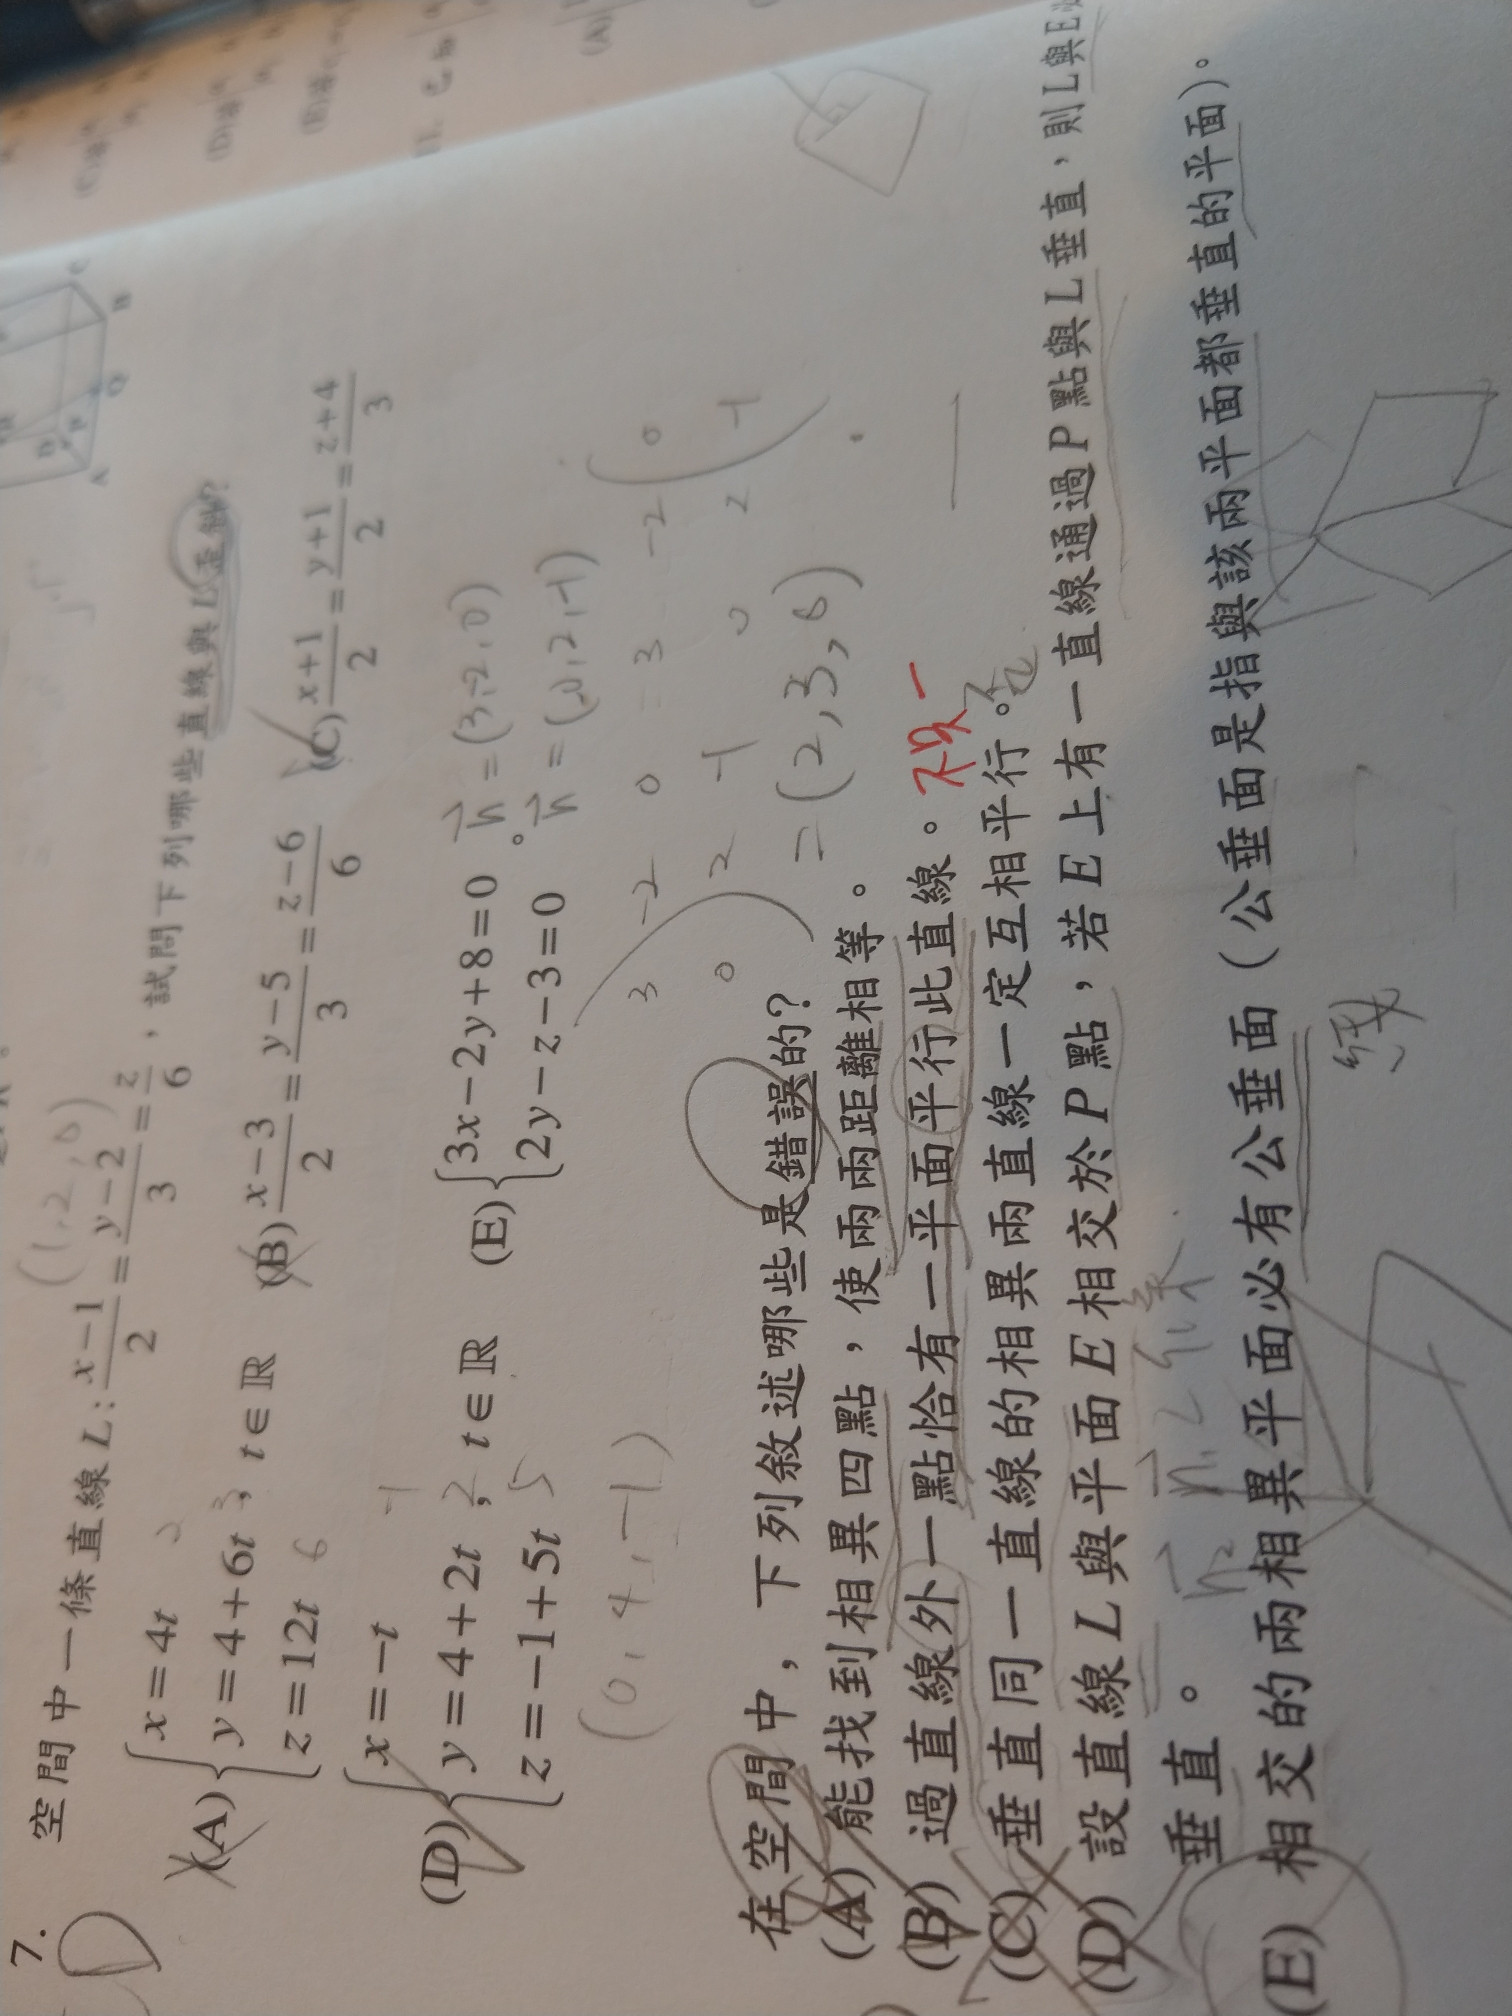 7.
空間中一條直線 L: (x−1)/2 = (y−2)/3 = z/6 , 試問下列哪些直線與 L 歪斜?
(1,2,0)
(A) { x=4t
y=4+6t , t∈ℝ
z=12t
2
3
6
(B) (x−3)/2 = (y−5)/3 = (z−6)/6
(C) (x+1)/2 = (y+1)/2 = (z+4)/3
(D) { x=−t
y=4+2t , t∈ℝ
z=−1+5t
−1
2
5
(0,4,−1)
(E) { 3x−2y+8=0
2y−z−3=0 。
n=(3,−2,0)
n=(0,2,−1)
3 −2 0 = 3 −2 0
0 2 −1 0 2 −1
=(2,3,6)
在空間中,下列敘述哪些是錯誤的?
(A) 能找到相異四點,使兩兩距離相等。
(B) 過直線外一點恰有一平面平行此直線。
(C) 垂直同一直線的相異兩直線一定互相平行。
(D) 設直線 L 與平面 E 相交於 P 點,若 E 上有一直線通過 P 點與 L 垂直,則 L 與 E
垂直。
(E) 相交的兩相異平面必有公垂面(公垂面是指與該兩平面都垂直的平面)。